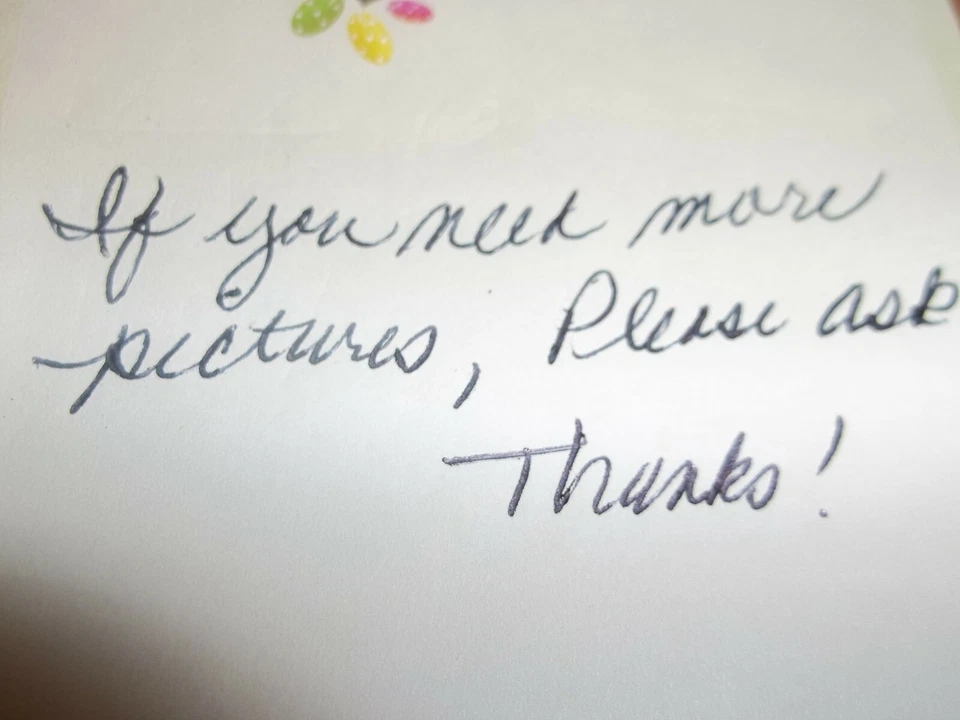 If you need more
pictures, Please ask
Thanks!